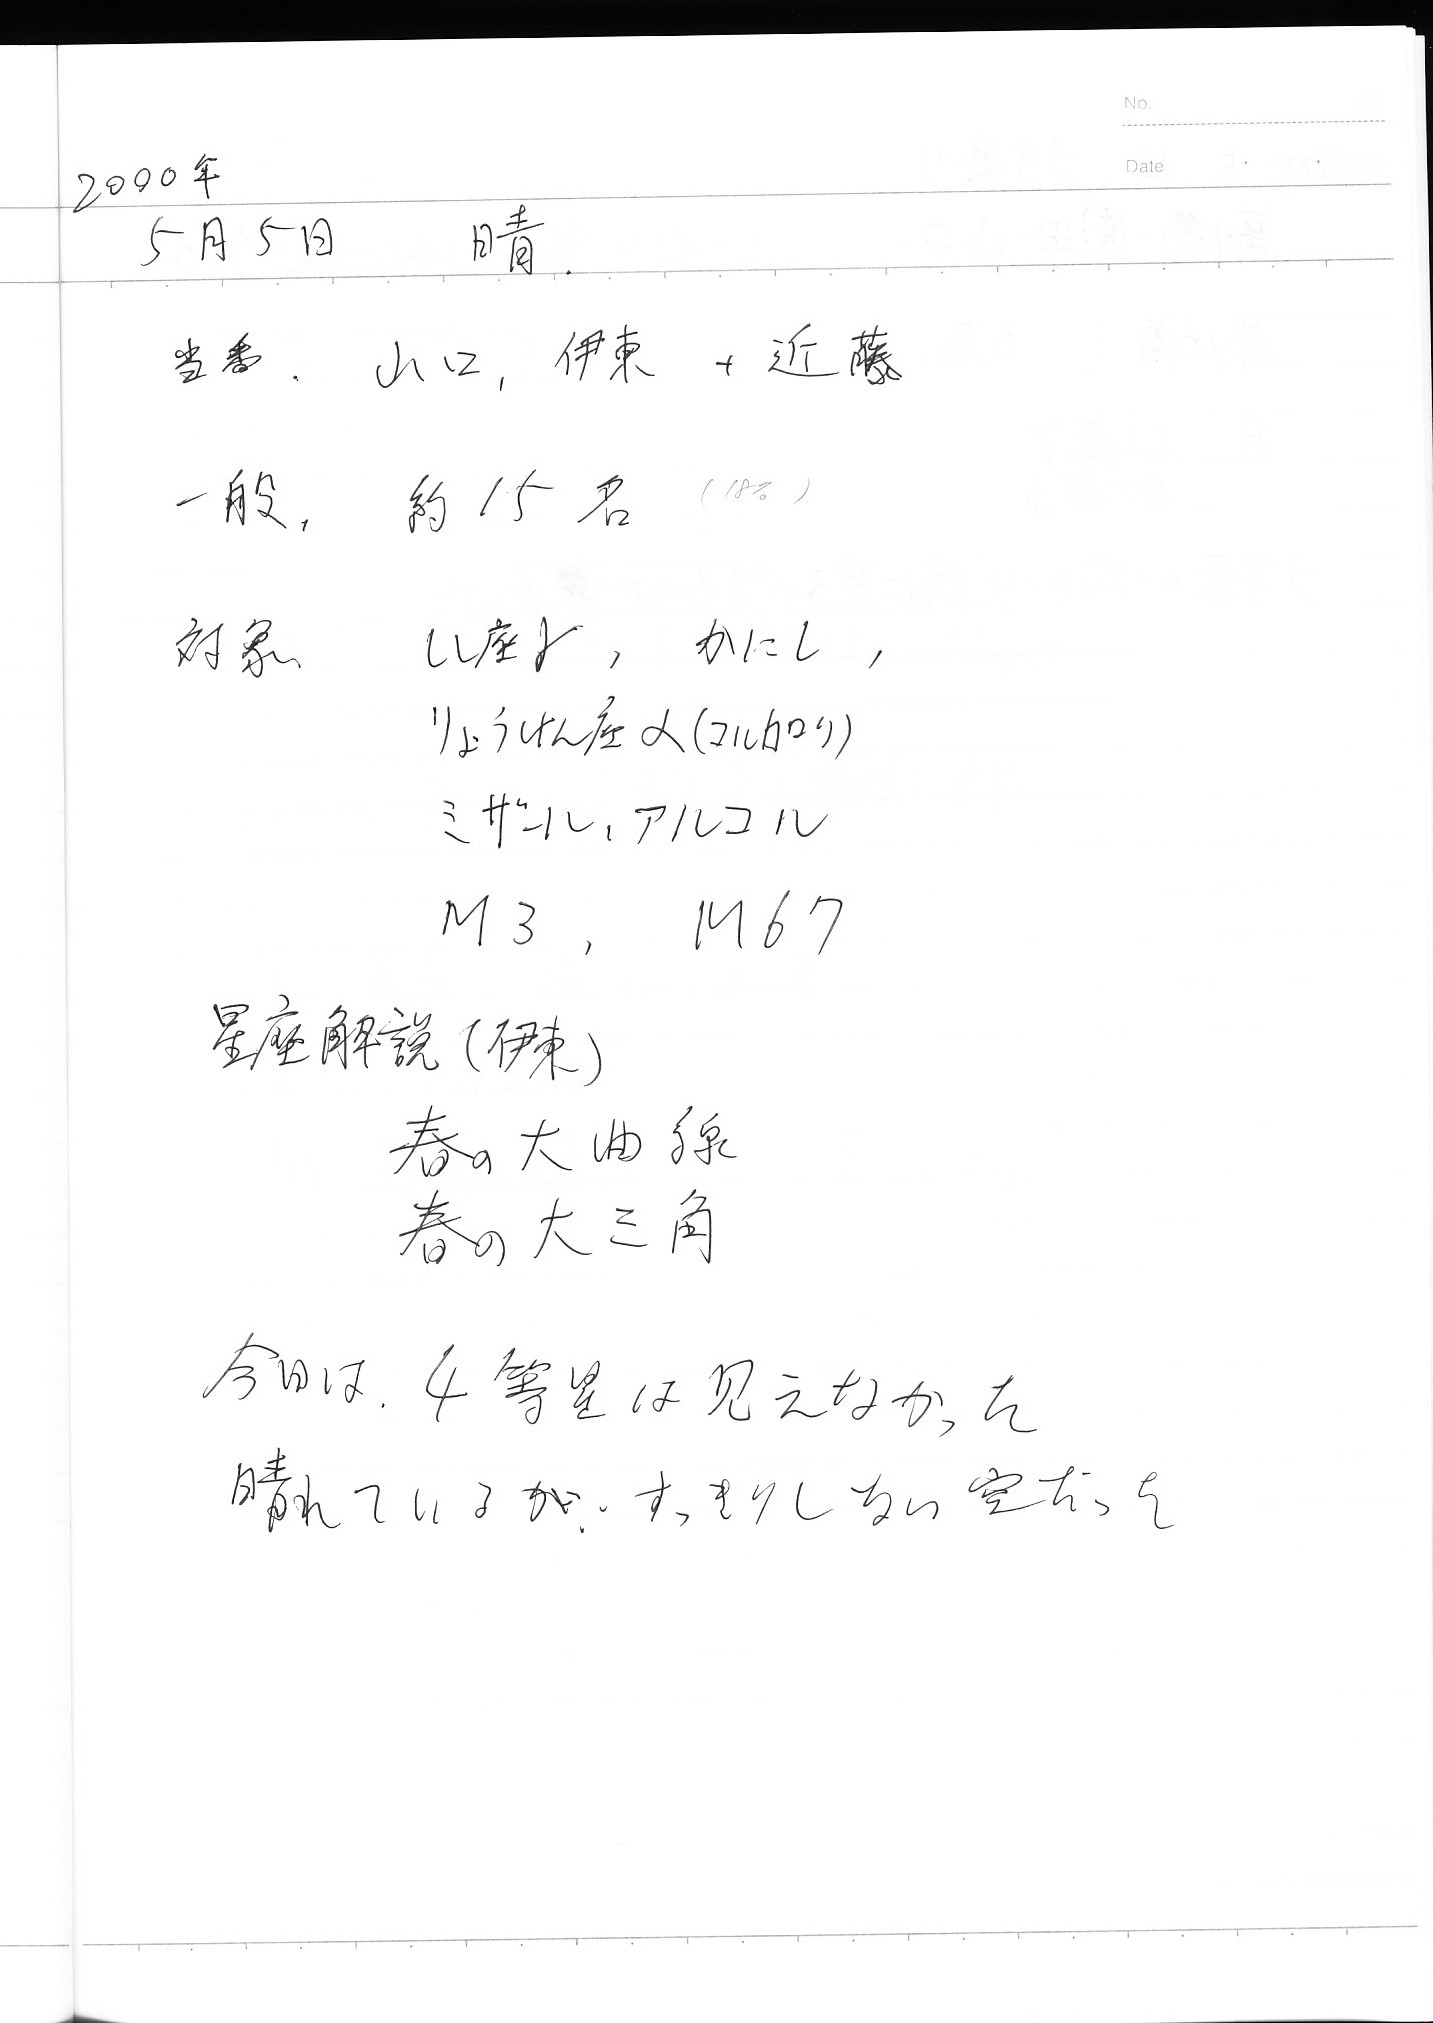 No.
Date
2000年
5月5日 晴.
当番. 山口, 伊東 + 近藤
一般, 約15名 (18名)
対象 しし座γ, かにι,
りょうけん座α(コルカロリ)
ミザール, アルコル
M3, M67
星座解説(伊東)
春の大曲線
春の大三角
今日は. 4等星は見えなかった
晴れているが, すっきりしない空だった